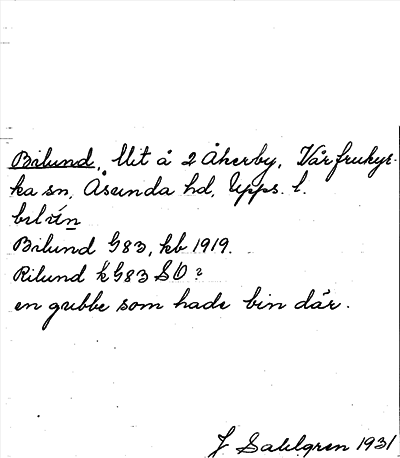 Bilund, Utt å 2 Åkerby, Vårfrukyr-
ka sn, Åsunda hd, Upps. l.
Bilund G83, kb 1919.
Rilund k G83 SO?
en gubbe som hade bin där.
J Sahlgren 1931